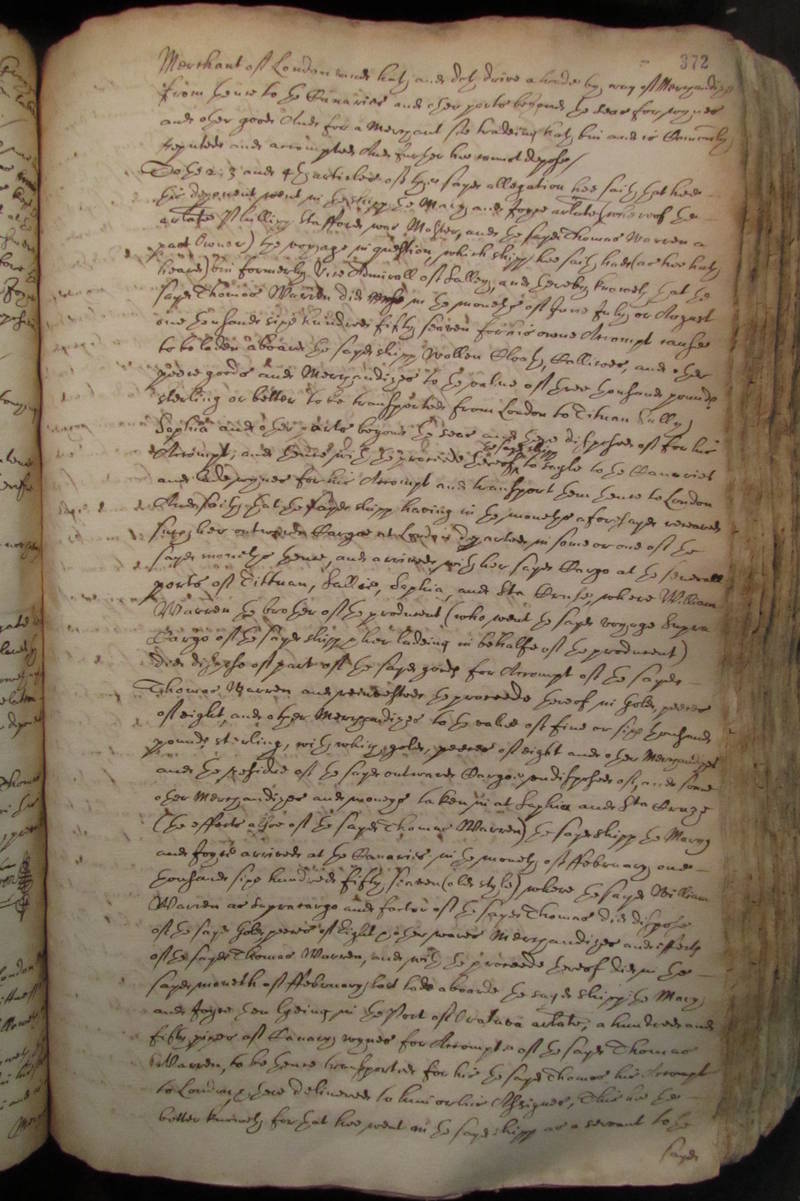 372
Merchant of London and hath and doth drive a trade by way of Merchandize
from hence to the Canaries and other ports beyond the seas for wynes
and other goods And for a Merchant soe tradeing hath bin and is Comonly
reputed and accompted And further hee cannot depose/
To the 2. 3 and 4th articles of the sayd allegation hee saith that hee
this deponent went in the shipp the Mary and Joyce arlate (whereof the
arlate Stafford was Master, and the sayd Thomas Warren a
part Owner) the voyage in question, which shipp hee saith had (as hee hath
heard) bin formerly Vice Admirall of Salley, and thereby knoweth that the
sayd Thomas Warren did in the moneths of June July or August
one thousand sixe hundred fifty seaven for his owne Accompt cause
to be laden aboard the sayd shipp Wollen Cloath, Callicoes, and other
peece goods and Merchandizes to the value of three thousand pounds
sterling or better to be transported from London to Tituan Sally
Saphia and other parts beyond the seas and there disposed of for his
Accompt, and thence with the proceede thereof the sayd shipp to sayle to the Canaries
and lade wynes for his Accompt and transport them thence to London
And saith that the sayd shipp having in the moneths aforesayd received
in her outwards Cargo at London departed in some or one of the
sayd moneths thence, and arrived with her sayd Cargo at the severall
ports of Tittuan, Sallie, Saphia, and Sta Cruse, where William
Warren the brother of the producent (who went the sayd voyage Supra
Cargo of the sayd shipp her ladeing in behalfe of the producent)
did dispose of part of the sayd goods for Accompt of the sayd
Thomas Warren and reinvested the proceede thereof in Gold, peeces
of eight, and other Merchandizes to the value of five or sixe thousand
pounds sterling, with which gold, peeces of eight and other Merchandizes
and the residue of the sayd outwards Cargo undisposed of, and some
other Merchandizes and moneys taken in at Saphia and Sta Cruze
(the effects alsoe of the sayd Thomas Warren) the sayd shipp the Mary
and Joyce arrived at the Canaries in the moneth of ffebruary one
thousand sixe hundred fifty seaven (old style) where the sayd William
Warren as Supracargo and factor of the sayd Thomas did dispose
of the sayd Gold peeces of Eight other wares Merchandizes and effects
of the sayd Thomas Warren, and with the proceede thereof did in the
sayd moneth of ffebruary last lade aboard the sayd shipp the Mary
and Joyce then lyeing in the Port of Oratava arlate, a hundred and
fifty pipes of Canary wynes for Accompt of the sayd Thomas
Warren, to be thence transported for his the sayd Thomas his Accompt
to London there delivered to him or his Assignes, This hee the
better knoweth for that hee went in the sayd shipp as a servant to the
sayd